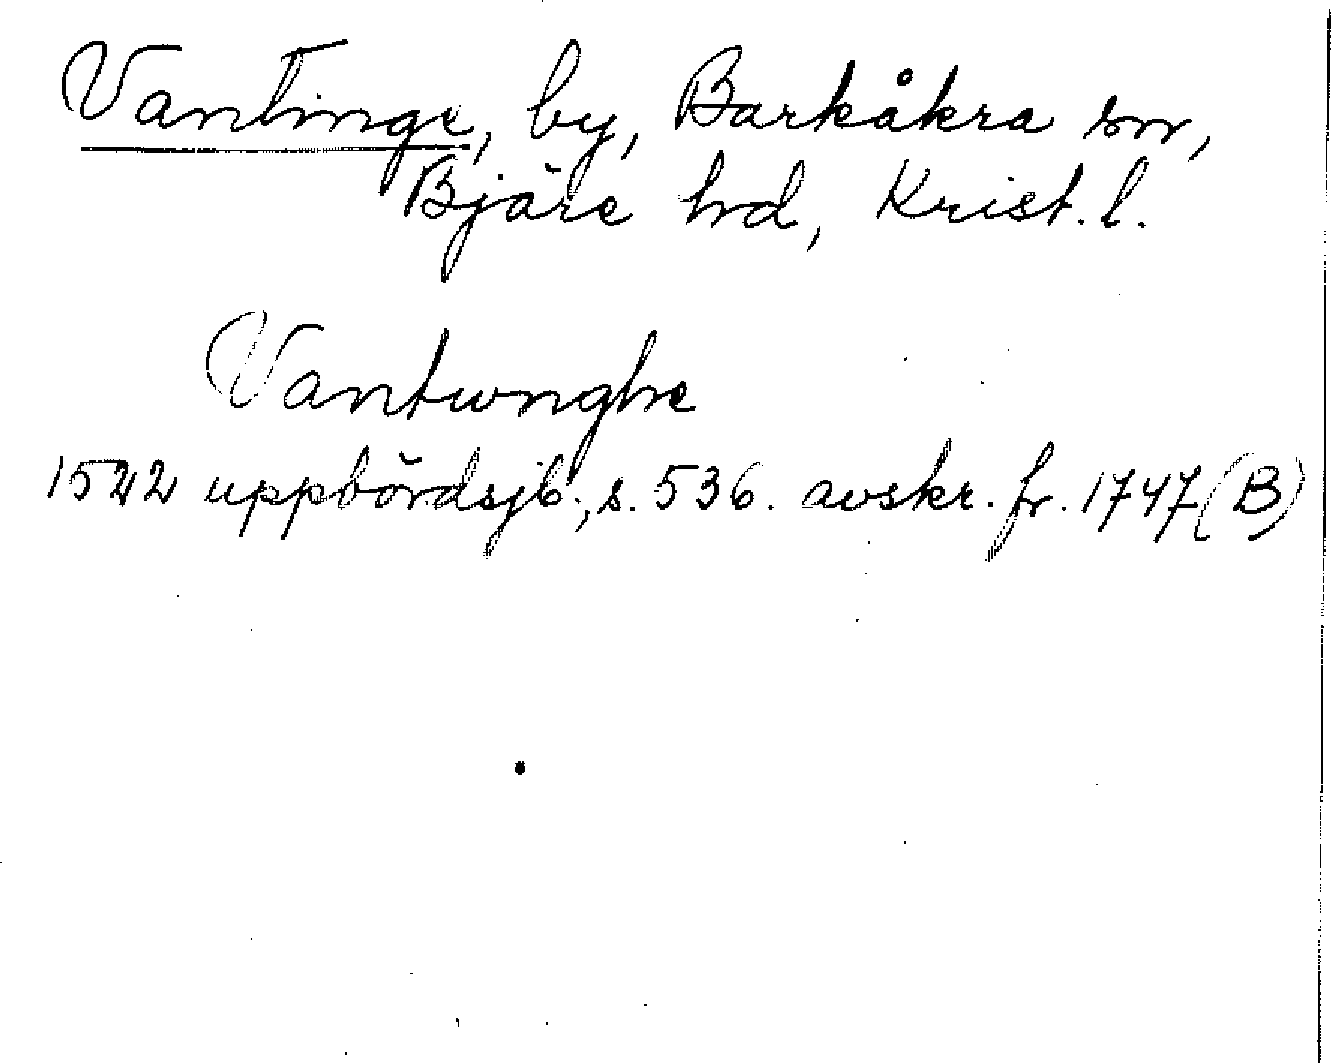 Vantinge, by, Barkåkra sn,
Bjäre hd, Krist. l.
Vantwnghe
1522 uppbördsjb; s. 536. avskr. fr. 1747 (B)